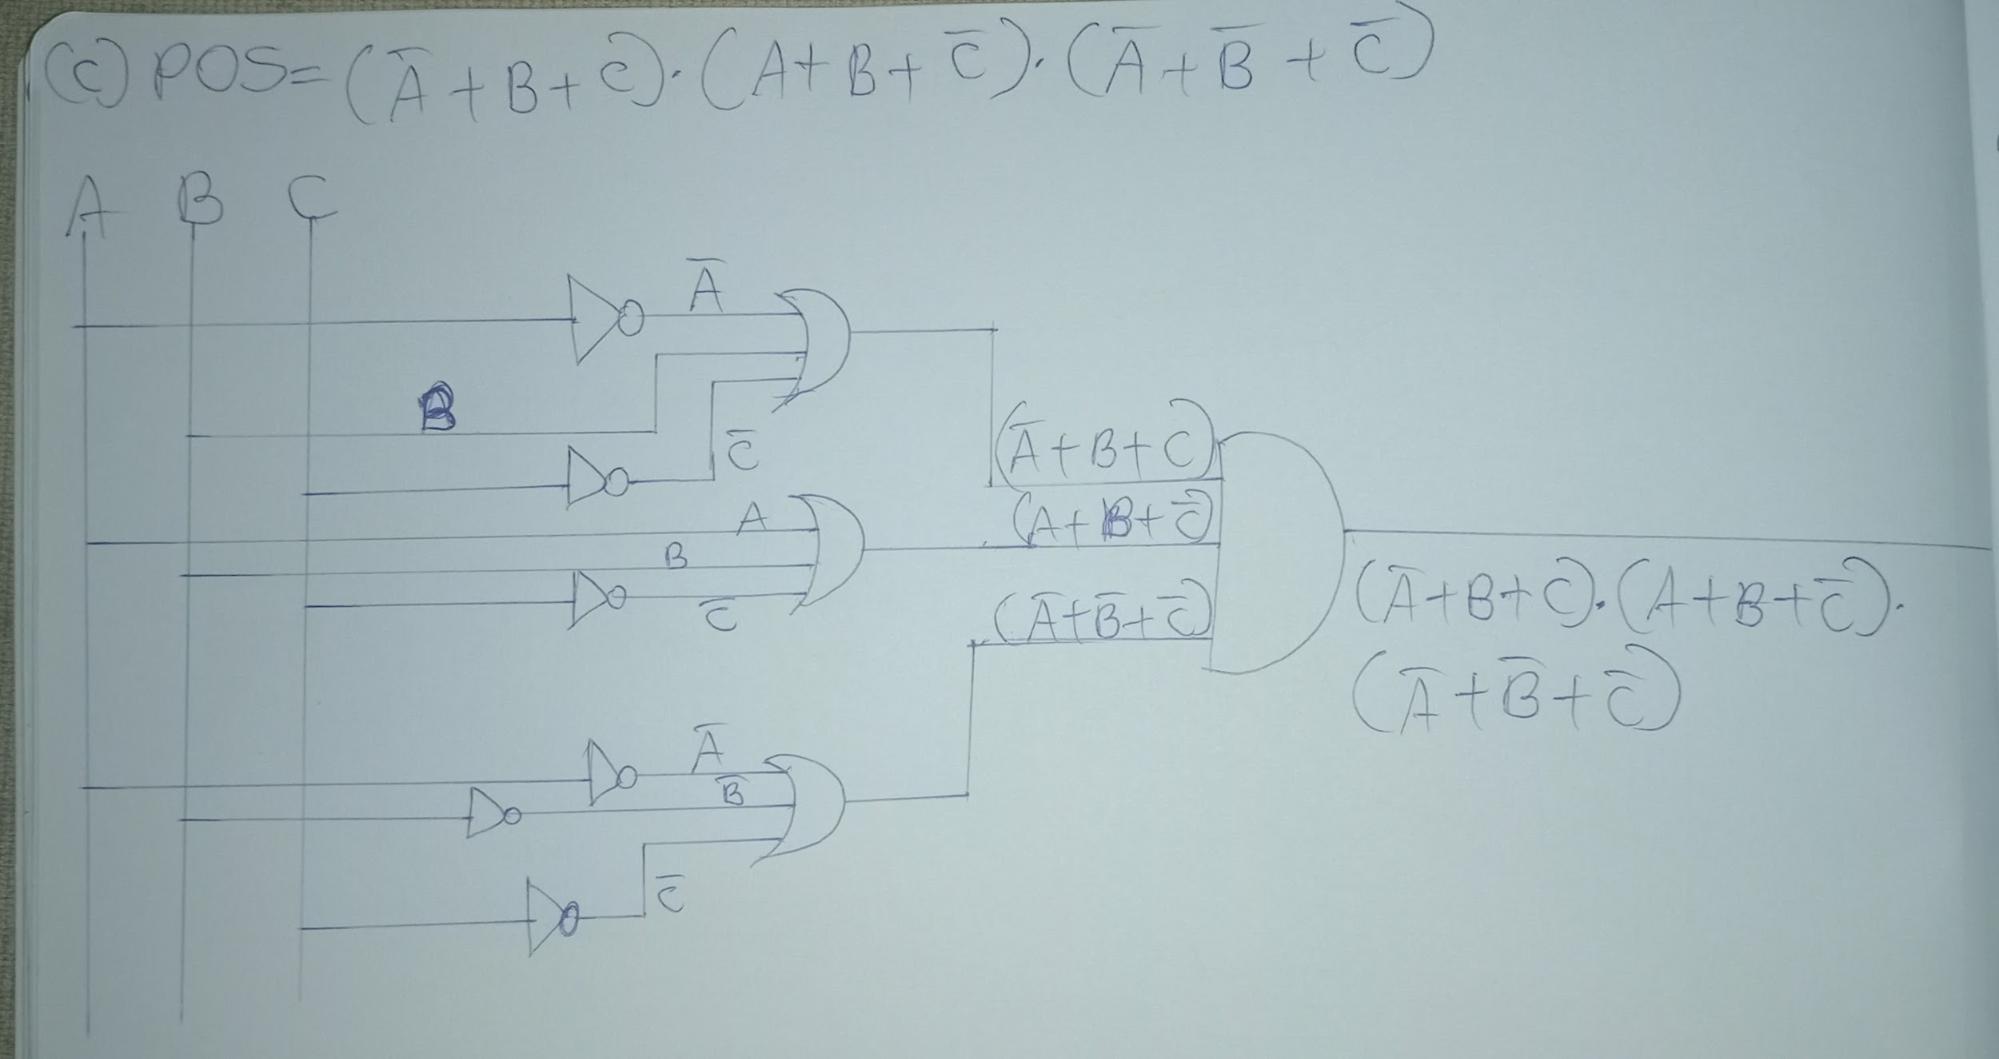 (c) POS= (A̅ + B + C)·(A + B + C̅)·(A̅ + B̅ + C̅)
A B C
A̅
B
C̅
(A̅ + B + C)
A
(A + B + C̅)
B
C̅
(A̅ + B̅ + C̅)
(A̅ + B + C)·(A + B + C̅)·
(A̅ + B̅ + C̅)
A̅
B̅
C̅